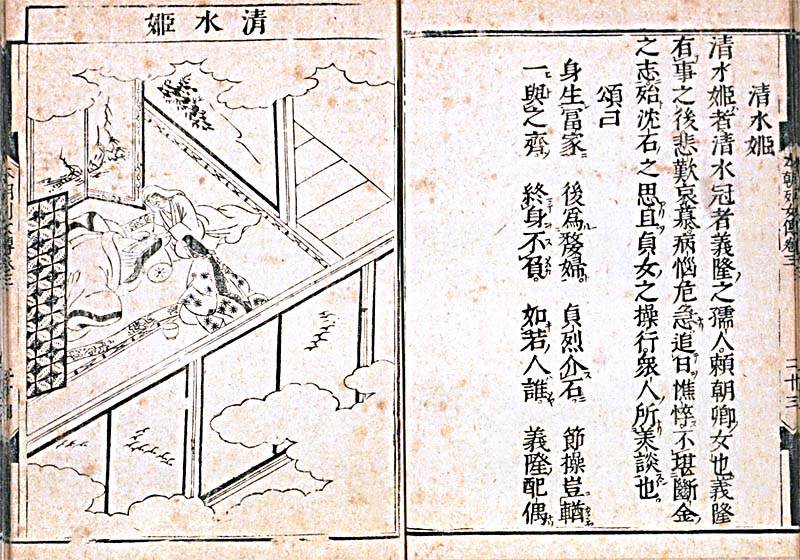 清水姫
清水姫者清水冠者義隆之孺人頼朝卿女也義隆
有事之後悲歎哀慕病悩危急追日憔悴不堪斷金
之志殆沈右之思且貞女之操行衆人所美談也
頌曰
身生冨家 後為嫠婦 貞烈介石 節操豈輶
一與之齊 終身不負 如若人誰 義隆配偶
本朝列女傳卷三
二十三
清水姫